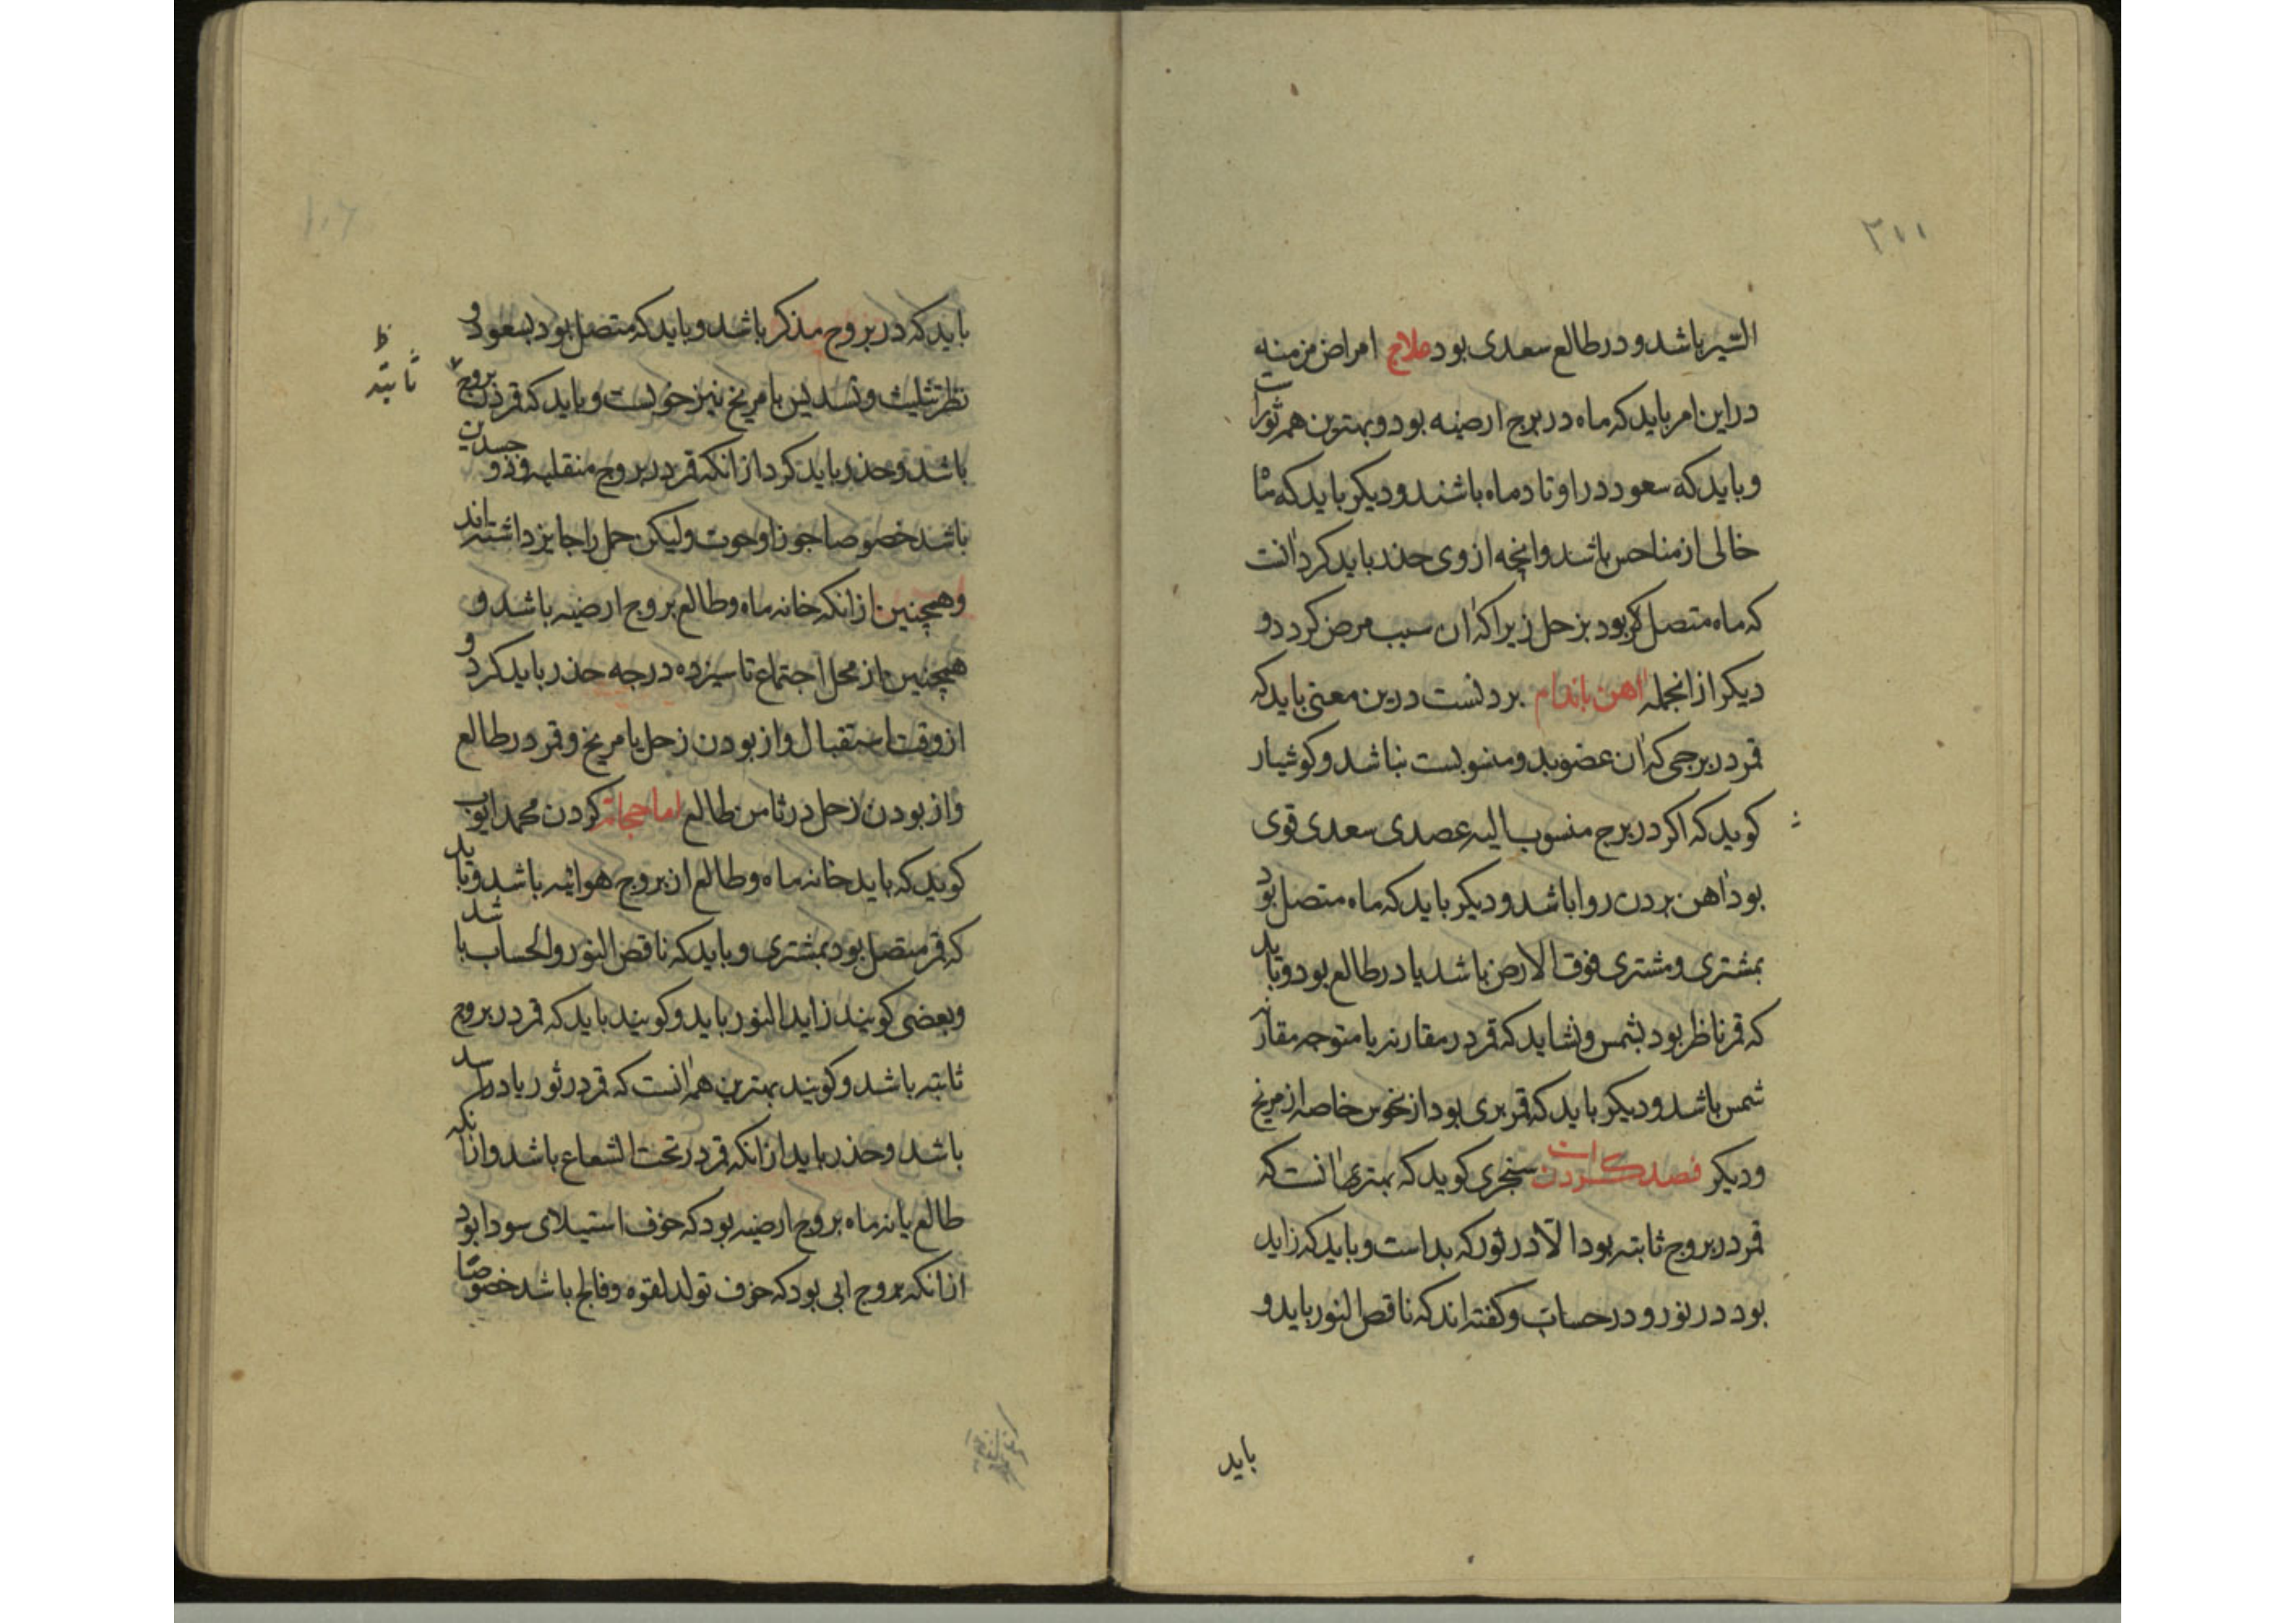 ۲۱۱
السیر باشد و در طالع سعدی بود علاج امراض مزمنه
در این امر باید که ماه در برج ارضیه بود و بهترین همه ثورات
و باید که سعود در اوتاد ماه باشند و دیکر باید که
خالی از مناحس باشد و انچه از وی حذر باید کرد آنت
که ماه متصل بود بزحل زیرا که آن سبب مرض کردد و
دیکر از انجمله آهن باندام بردنست درین معنی باید که
قمر در برجی که آن عضو بدو منسوبست نباشد و کوشیار
کوید که اکر در برج منسوب الیه عصدی سعدی قوی
بود آهن بردن روا باشد و دیکر باید که ماه متصل بود
بمشتری و مشتری فوق الارض باشد یا در طالع بود و باید
که قمر ناظر بود بشمس و نشاید که قمر در مقارنه یا متوجه مقارنه
شمس باشد و دیکر باید که قمر بری بود از نحوس خاصه از مریخ
و دیکر فصد کردن است سنجری کوید که بهتری آنت که
قمر در بروج ثابته بود الا در ثور که بد است و باید که زاید
بود در نور و در حساب و کفته اند که ناقص النور باید و
باید
۱۰۶
باید که در بروج مذکر باشد و باید که متصل بود بسعود و
نظر تثلیث و تسدیس با مریخ نیز خوبست و باید که قمر در بروج
ظ
ثابته
باشد و حذر باید کرد از انکه قمر در بروج منقلبه و ذو جسدین
باشد خصوصا جوزا و حوت ولیکن حمل را جایز داشته اند
و همچنین از انکه خانه ماه و طالع بروج ارضیه باشد و
همچنین از محل اجتماع تا سیزده درجه حذر باید کرد و
از وقت استقبال و از بودن زحل با مریخ و قمر در طالع
و از بودن زحل در ثامن طالع اما حجامة کردن محمد ایوب
کوید که باید خانه ماه و طالع از بروج هوائیه باشد و باید
که قمر متصل بود بمشتری و باید که ناقص النور والحساب باشد
و بعضی کویند زاید النور باید و کویند باید که قمر در بروج
ثابته باشد و کویند بهترین همه آنت که قمر در ثور یا در اسد
باشد و حذر باید از انکه قمر در تحت الشعاع باشد و از انکه
طالع یا نه ماه بروج ارضیه بود که خوف استیلای سودا بود
از انکه بروج ابی بود که خوف تولد لقوه و فالج باشد خصوصا